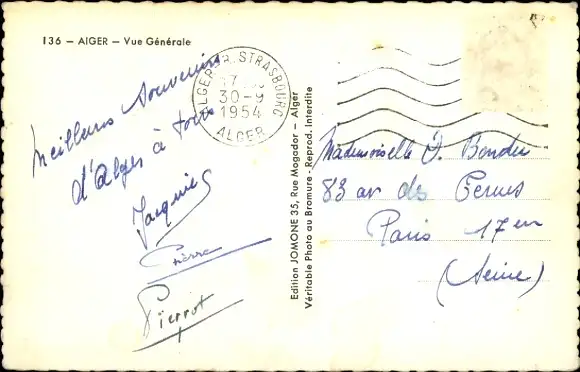 136 — AlGER — Vue Générale
ALGER R. STRASBOURG
30-9
1954
ALGER
Meilleurs Souvenirs
d'Alger à tous
Jacquie
Pierre
Pierrot
Edition JOMONE 35, Rue Mogador — Alger
Véritable Photo au Bromure - Reprod. Interdite
Mademoiselle O. Bondu
83 av des Ternes
Paris 17 em
(Seine)